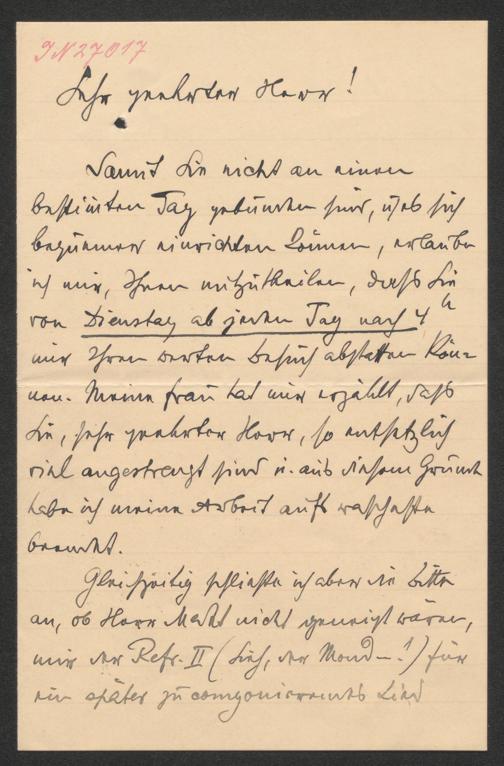 IN 27017
Sehr geehrter Herr!
Damit Sie nicht an einen
bestimten Tag gebunden sind, u. es sich
bequemer einrichten können, erlaube
ich mir, Ihnen mitzutheilen, dass Sie
von Dienstag ab jeden Tag nach 4 h
mir Ihren werten Besuch abstatten kön=
nen. Meine Frau hat mir erzählt, dass
Sie, sehr geehrter Herr, so entsetzlich
viel angestrengt sind u. aus diesem Grunde
habe ich meine Arbeit aufs rascheste
beendet.
Gleichzeitig schließe ich aber die Bitte
an, ob Herr nicht geneigt wären,
mir der Refr. II (Sieh, der Mond–!) für
ein später zu componierendes Lied